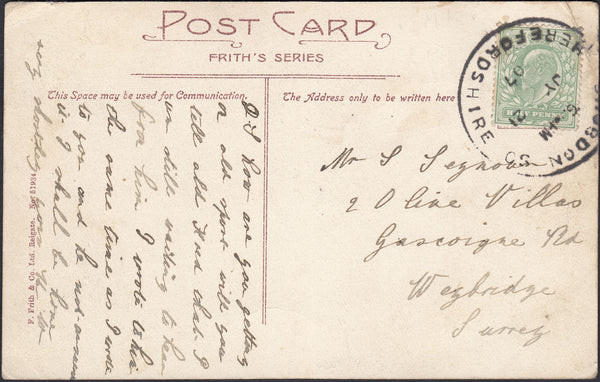 POST CARD
FRITH'S SERIES
This Space may be used for Communication.
The Address only to be written here
D. S how are you getting
on old sport will you
tell old Fred that I
am still waiting to hear
from him I wrote to him
the same time as I wrote
to you and he not
is. I shall be home
very shortly yours
Mr S Seymour
2 Olive Villas
Gascoigne Rd
Weybridge
Surrey
HEREFORDSHIRE
JY
07
F. Frith & Co. Ltd. Reigate. No. 51934